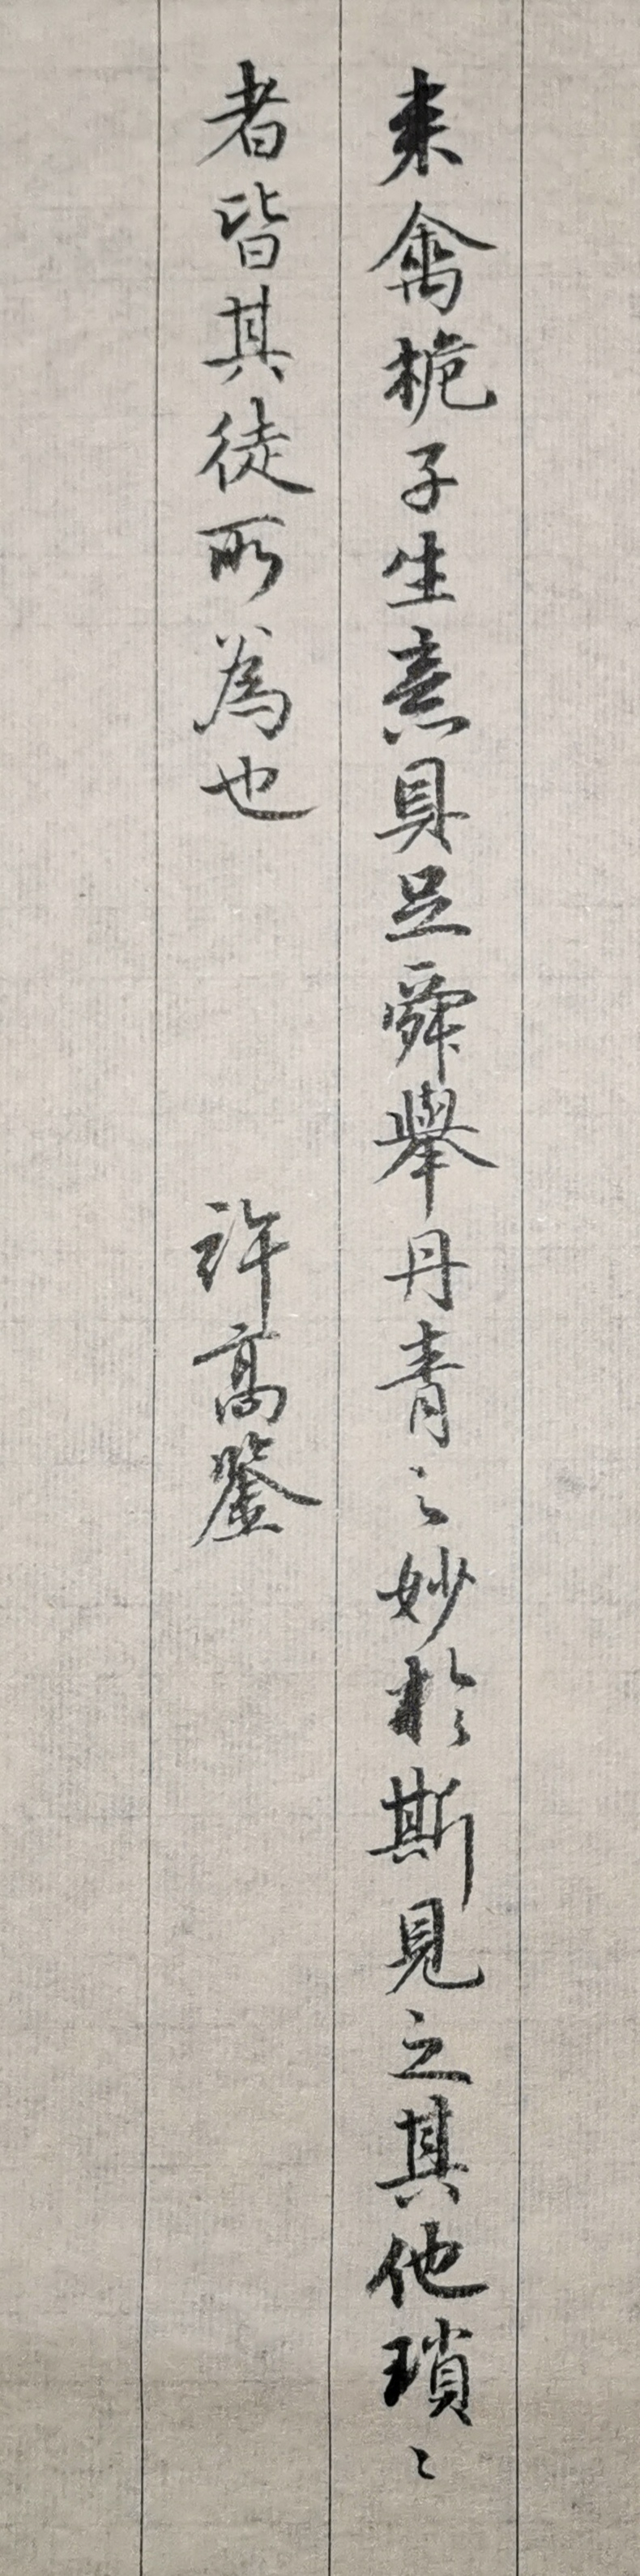 来禽梔子生意具足舜舉丹青之妙於斯見之其他瑣〻
者皆其徒所為也 許高鑒